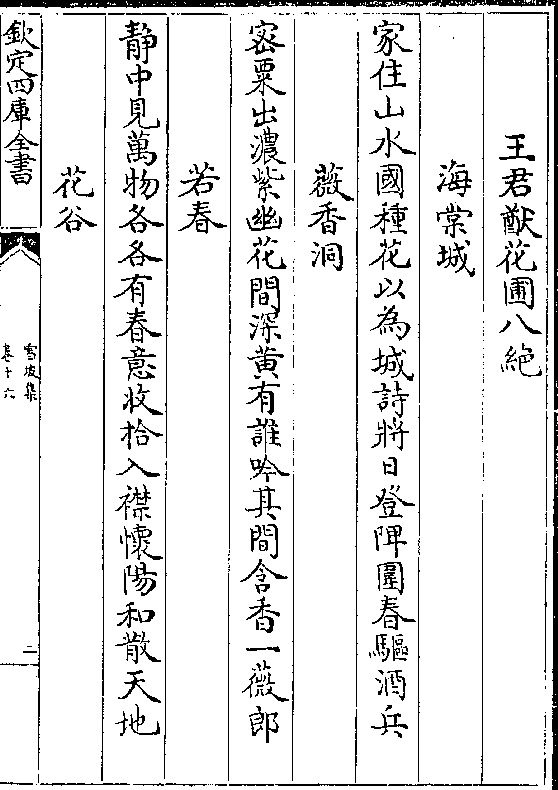 王君猷花圃八絶
海棠城
家住山水國種花以為城詩將日登陴圍春驅酒兵
薇香洞
密粟出濃紫幽花間深黄有誰吟其間含香一薇郎
若春
静中見萬物各各有春意收拾入襟懷陽和散天地
花谷
欽定四庫全書
雪坡集
卷十六
二